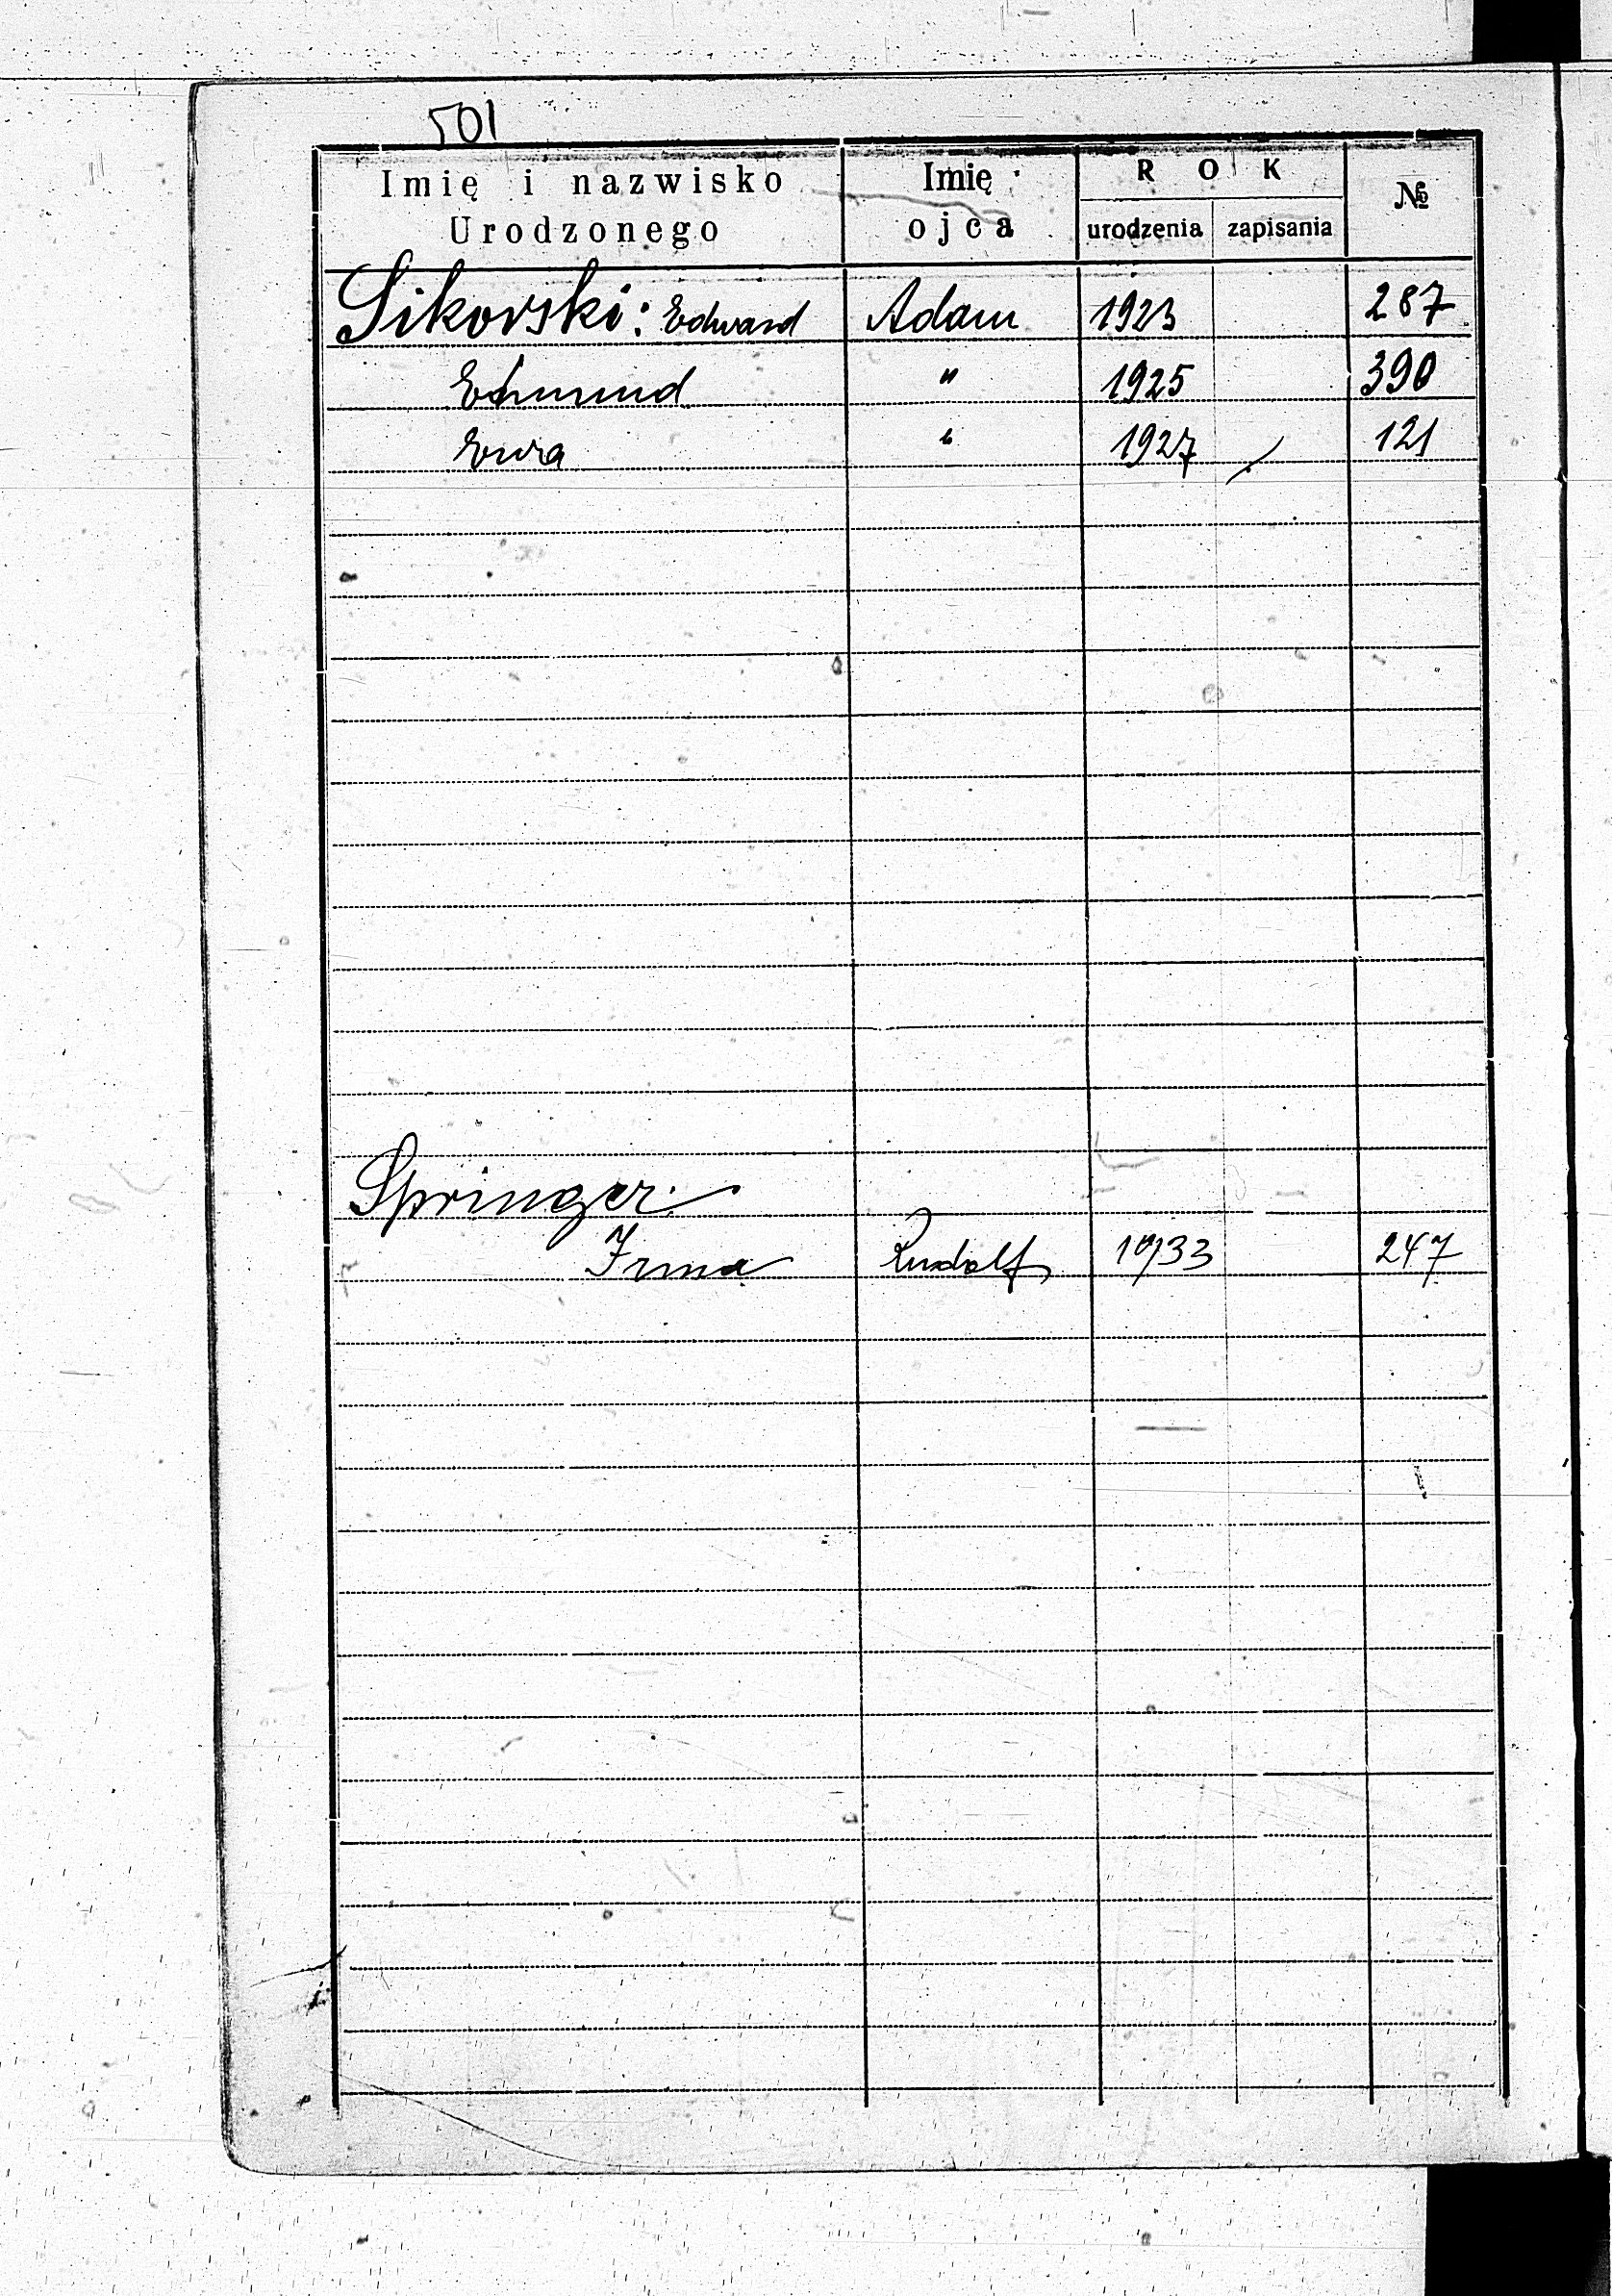 501
Imię i nazwisko Urodzonego | Imię ojca | ROK urodzenia | ROK zapisania | №
Sikorski: Edward | Adam | 1923 | | 287
Edmund | " | 1925 | | 390
Ewa | " | 1927 | | 121
Springer:
Irma | Rudolf | 1933 | | 247